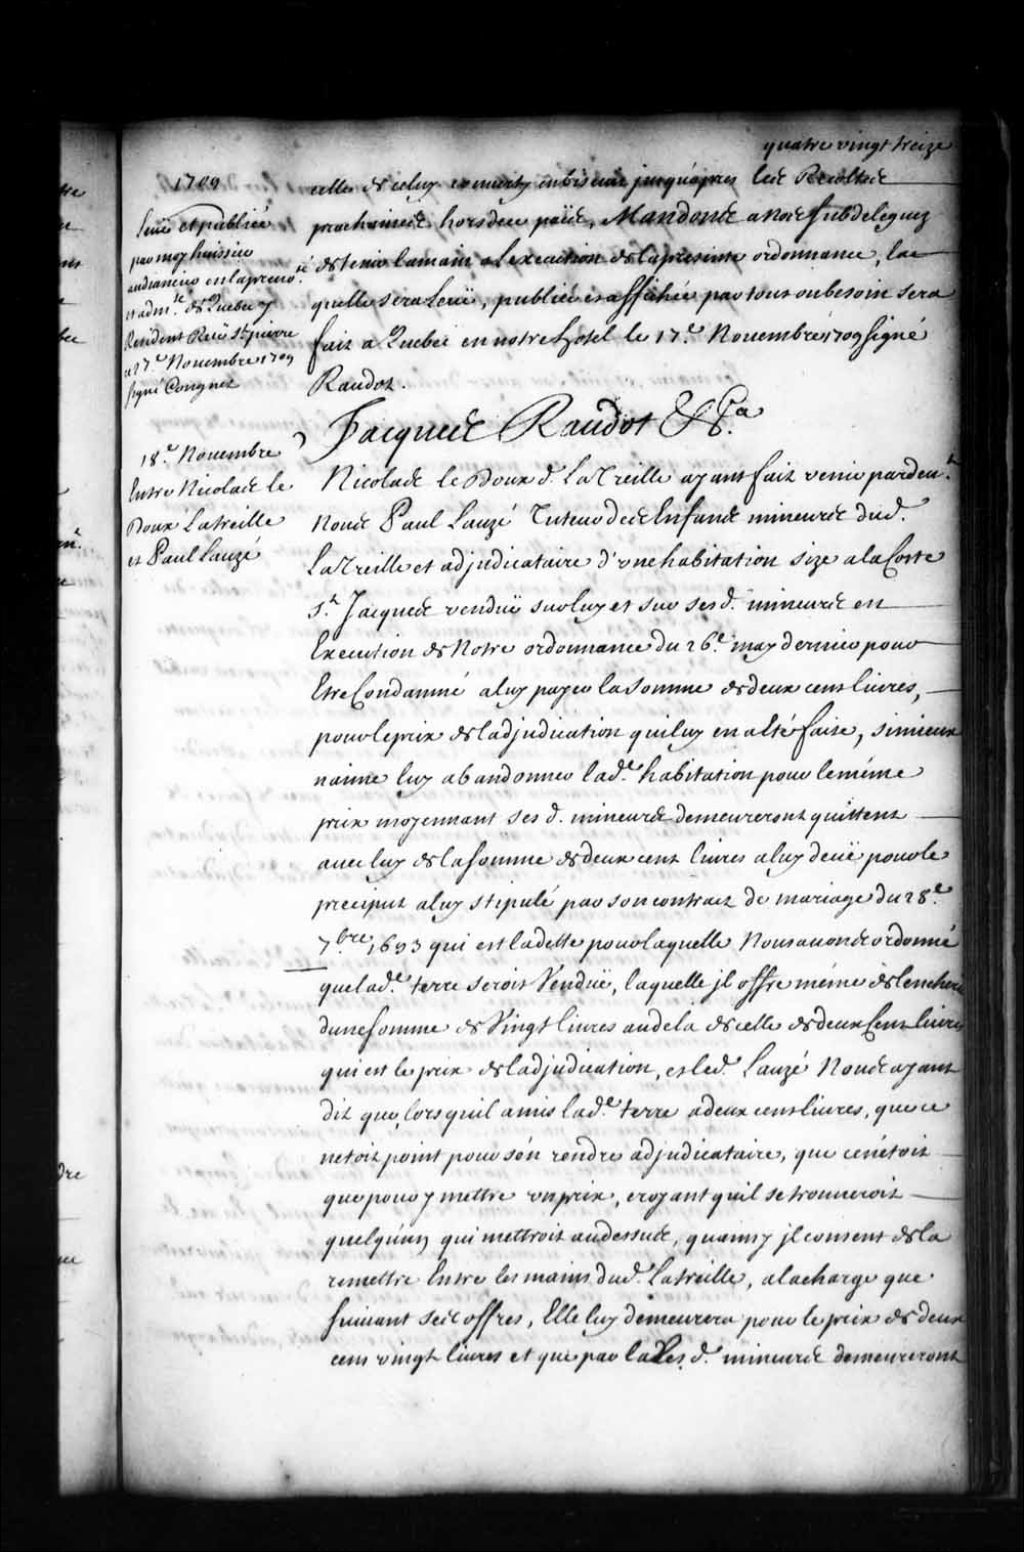 quatre vingt treize
1709
Leüe et publiée
par moy huissier
audiancier en la prevo.té
et adm.té de Quebec y
Residant Rüe S.t pierre
a 17.e Novembre 1709
signé Congnet
celles de celuy converty en biscuit jusqu'apres les Recoltes
prochaines hors de ce païs, Mandons a nos subdeleguez
de tenir la main a l'execution de la presente ordonnance, la
quelle sera Leüe, publiée et affichée par tout ou besoin sera
fait a Quebec en notre hotel le 17.e Novembre 1709 signé
Raudot.
Jacques Raudot &c.a
18.e Novembre
Entre Nicolas le
Doux Latreille
et Paul Lauzé
Nicolas le Doux d. LaTreille ayant fait venir pardev.t
Nous Paul Lauzé Tuteur des Enfans mineurs dud.
LaTreille et adjudicataire d'vne habitation size a la Coste
S.t Jacques vendüe sur luy et sur ses d. mineurs en
Execution de Notre ordonnance du 26.e may dernier pour
Estre Condamné a luy payer la somme de deux cens livres,
pour le prix de ladjudication qui luy en a Eté faite, si mieux
naime luy abandonner lad.e habitation pour le méme
prix moyennant ses d. mineurs demeureront quittens
avec luy de la somme de deux cens livres a luy deüe pour le
preciput a luy stipulé par son contrat de mariage du 28.e
7.bre 1693 qui est la dette pour laquelle Nous avons ordonné
que lad.e terre seroit Vendüe, laquelle jl offre méme de lencherir
dune somme de Vingt livres au dela de celle de deux Cens livres
qui est le prix de ladjudication, et led. Lauzé Nous ayant
dit que lorsquil a mis lad.e terre a deux cens livres, que ce
netoit point pour s'én rendre adjudicataire, que cenétoit
que pour y mettre vn prix, croyant quil se trouveroit
quelqu'un qui mettroit au dessus, quainsy jl consent de la
remettre Entre les mains dud. Latreille, a la charge que
suivant ses offres, Elle luy demeurera pour le prix de deux
cens vingt livres et que par la les d. mineurs demeureront